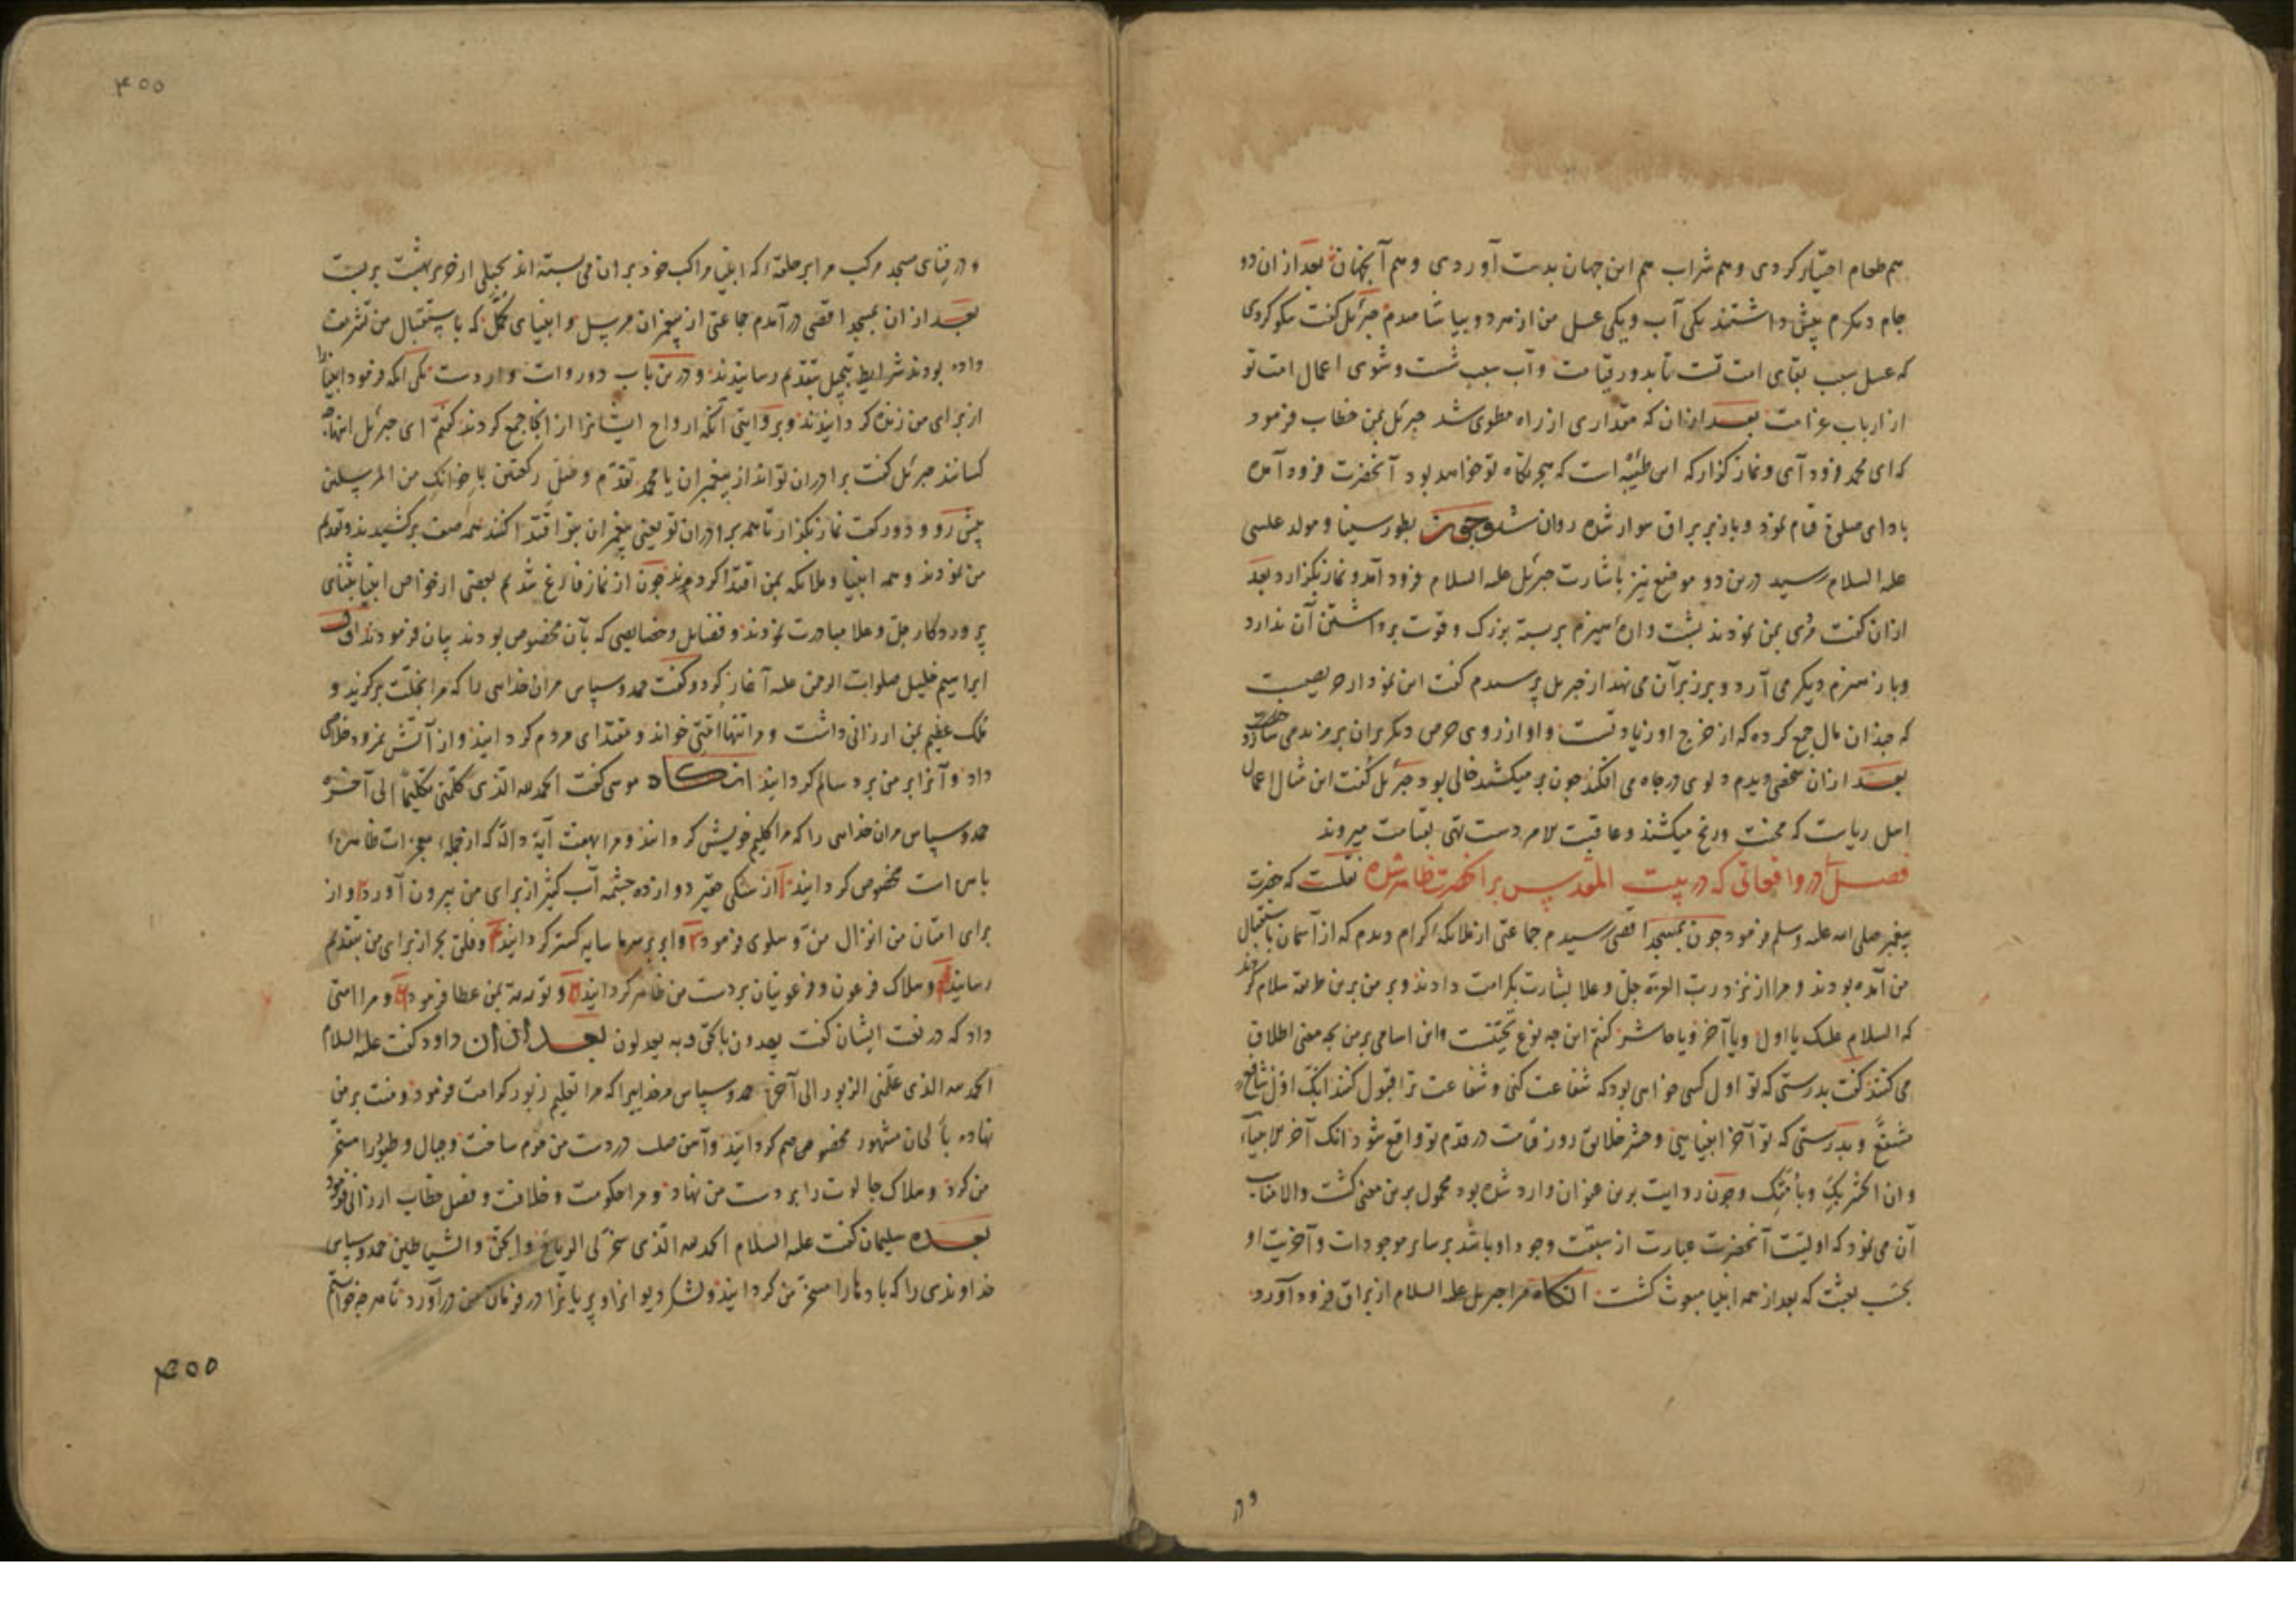 هم طعام اختیار کردی و هم شراب هم این جهان بدست آوردی و هم آنجهان بعد از ان دو
جام دیکرم پیش داشتند یکی آب و یکی عسل من از هر دو بیاشامیدم جبرئیل کفت نیکو کردی
که عسل سبب بقای امت تست تا بدور قیامت و آب سبب شست و شوی اعمال امت تو
از ارباب غرامت بعد از ان که مقداری از راه مطوی شد جبرئیل بمن خطاب فرمود
که ای محمد فرود آی و نماز کزار که این طیبه است که هجرتکاه تو خواهد بود آنحضرت فرود آمده
باداى صلوة قیام نمود و باز بر براق سوار شده روان شد و چون بطور سینا و مولد عیسی
علیه السلام رسید درین دو موضع نیز باشارت جبرئیل علیه السلام فرود آمد و نماز بکزارد بعد
ازان کفت مردی بمن نمودند پشتواره هیزم بر بسته بزرک و قوت برداشتن آن ندارد
و باز هیزم دیکر می آرد و بر زبر آن می نهد از جبریل پرسیدم کفت این نمودار حریصیست
که چندان مال جمع کرده که از خرج او زیادتست و او از روی حرص دیکر بران بر مزید می سازد
بعد ازان شخصی دیدم دلوی در چاه می افکند چون بر میکشد خالی بود جبرئیل کفت این مثال اعمال
اهل ریاست که محنت و رنج میکشند و عاقبت الامر دست تهی بقیامت میروند
فصل در واقعاتی که در بیت المقدس بر آنحضرت ظاهر شده نقلست که حضرت
پیغمبر صلی الله علیه وسلم فرمود چون بمسجد اقصی رسیدم جماعتی از ملائکه کرام دیدم که از آسمان باستقبال
من آمده بودند و مرا از نزد رب العزة جل و علا بشارت بکرامت دادند و بر من برین طریقه سلام کردند
که السلام علیک یا اول و یا آخر و یا حاشر کفتم این چه نوع تحیتست و این اسامی بر من بچه معنی اطلاق
می کنند کفت بدرستی که تو اول کسی خواهی بود که شفاعت کنی و شفاعت ترا قبول کنند انک اول شافع و
مشفع و بدرستی که تو آخر انبیایی و حشر خلایق روز قیامت در قدم تو واقع شود انک آخر الانبیاء
و ان الحشر بک و بامتک و چون روایت برین عنوان وارد شده بود محمول برین معنی کشت والا مناسب
آن می نمود که اولیت آنحضرت عبارت از سبقت وجود او باشد بر سایر موجودات و آخریت او
بحسب بعثت که بعد از همه انبیا مبعوث کشت انکاه مرا جبریل علیه السلام از براق فرود آورد
و در
۴۰۰
و در فنای مسجد مرکب مرا بر حلقه که انبیا مراکب خود بران می بسته اند بحبلی از حریر بهشت بر بست
بعد از ان بمسجد اقصی در آمدم جماعتی از پیغمبران مرسل و انبیای مکمل که باستقبال من تشریف
داده بودند شرایط تبجیل بتقدیم رسانیدند و درین باب دو روایت وارد است یکی آنکه فرمود انبیا را
از برای من زنده کردانیدند و بروایتی آنکه ارواح ایشانرا از انجا جمع کردند کفتم ای جبرئیل اینها چه
کسانند جبرئیل کفت برادران تو اند از پیغمبران یا محمد تقدم و صل رکعتین باخوانک من المرسلین
پیش رو و دو رکعت نماز بکزار تا همه برادران تو یعنی پیغمبران بتو اقتدا کنند همه صف برکشیدند و تقدیم
من نمودند و همه انبیا و ملائکه بمن اقتدا کردند چون از نماز فارغ شدیم بعضی از خواص انبیا بثنای
پروردکار جل و علا مبادرت نمودند و فضایل و خصایصی که بآن مخصوص بودند بیان فرمودند اول
ابراهیم خلیل صلوات الرحمن علیه آغاز کرد و کفت حمد و سپاس مران خدایی را که مرا بخلت برکزید و
ملک عظیم بمن ارزانی داشت و مرا تنها امتی خواند و مقتدای مردم کردانید و از آتش نمرود خلاصی
داد و آنرا بر من برد سالم کردانید انکاه موسی کفت الحمد لله الذی کلمنی تکلیما الی آخره
حمد و سپاس مران خدایی را که مرا کلیم خویش کردانید و مرا بهفت آیة داله که از جمله معجزات ظاهره
باس است مخصوص کردانید ۱ از سنکی حقیر دوازده چشمه آب کثیر از برای من بیرون آورد ۲ و از
برای امتان من انزال من و سلوی فرمود ۳ و ابر بر سر ما سایه کستر کردانید ۴ و فلق بحر از برای من بتقدیم
رسانید ۵ و هلاک فرعون و فرعونیان بر دست من ظاهر کردانید ۶ و توریة بمن عطا فرمود ۷ و مرا امتی
داد که در نعت ایشان کفت یهدون بالحق و به یعدلون بعد از ان داود کفت علیه السلام
الحمد لله الذی علمنی الزبور الی آخره حمد و سپاس مرخدایی را که مرا تعلیم زبور کرامت فرمود و منت بر من
نهاده بالحان مشهور مخصوصم کردانید و آهن صلب در دست من موم ساخت و جبال و طیور را مسخر
من کرد و هلاک جالوت را بر دست من نهاد و مرا حکومت و خلافت و فصل خطاب ارزانی فرمود
بعده سلیمان کفت علیه السلام الحمد لله الذی سخر لی الریاح و الجن و الشیاطین حمد و سپاس
خداوندی را که بادها را مسخر من کردانید و لشکر دیوانرا و پریانرا در فرمان من در آورد تا هرچه خواستم
۴۰۰